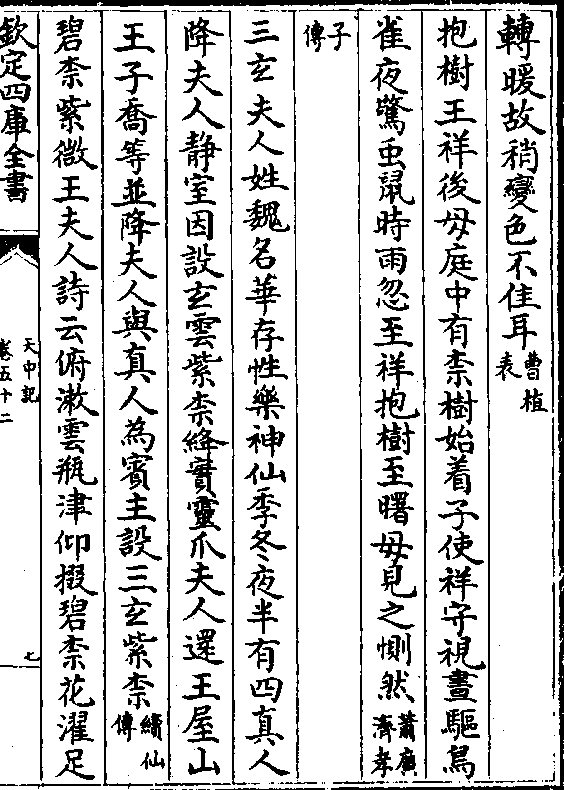 轉暖故稍變色不佳耳曹植表
抱樹王祥後母庭中有柰樹始着子使祥守視晝驅鳥
雀夜驚虫鼠時雨忽至祥抱樹至曙母見之惻然蕭廣濟孝
子傳
三玄夫人姓魏名華存性樂神仙季冬夜半有四真人
降夫人静室因設玄雲紫柰絳實靈爪夫人還王屋山
王子喬等並降夫人與真人為賓主設三玄紫柰續仙傳
碧柰紫微王夫人詩云俯漱雲瓶津仰掇碧柰花濯足
欽定四庫全書
天中記
卷五十二
七